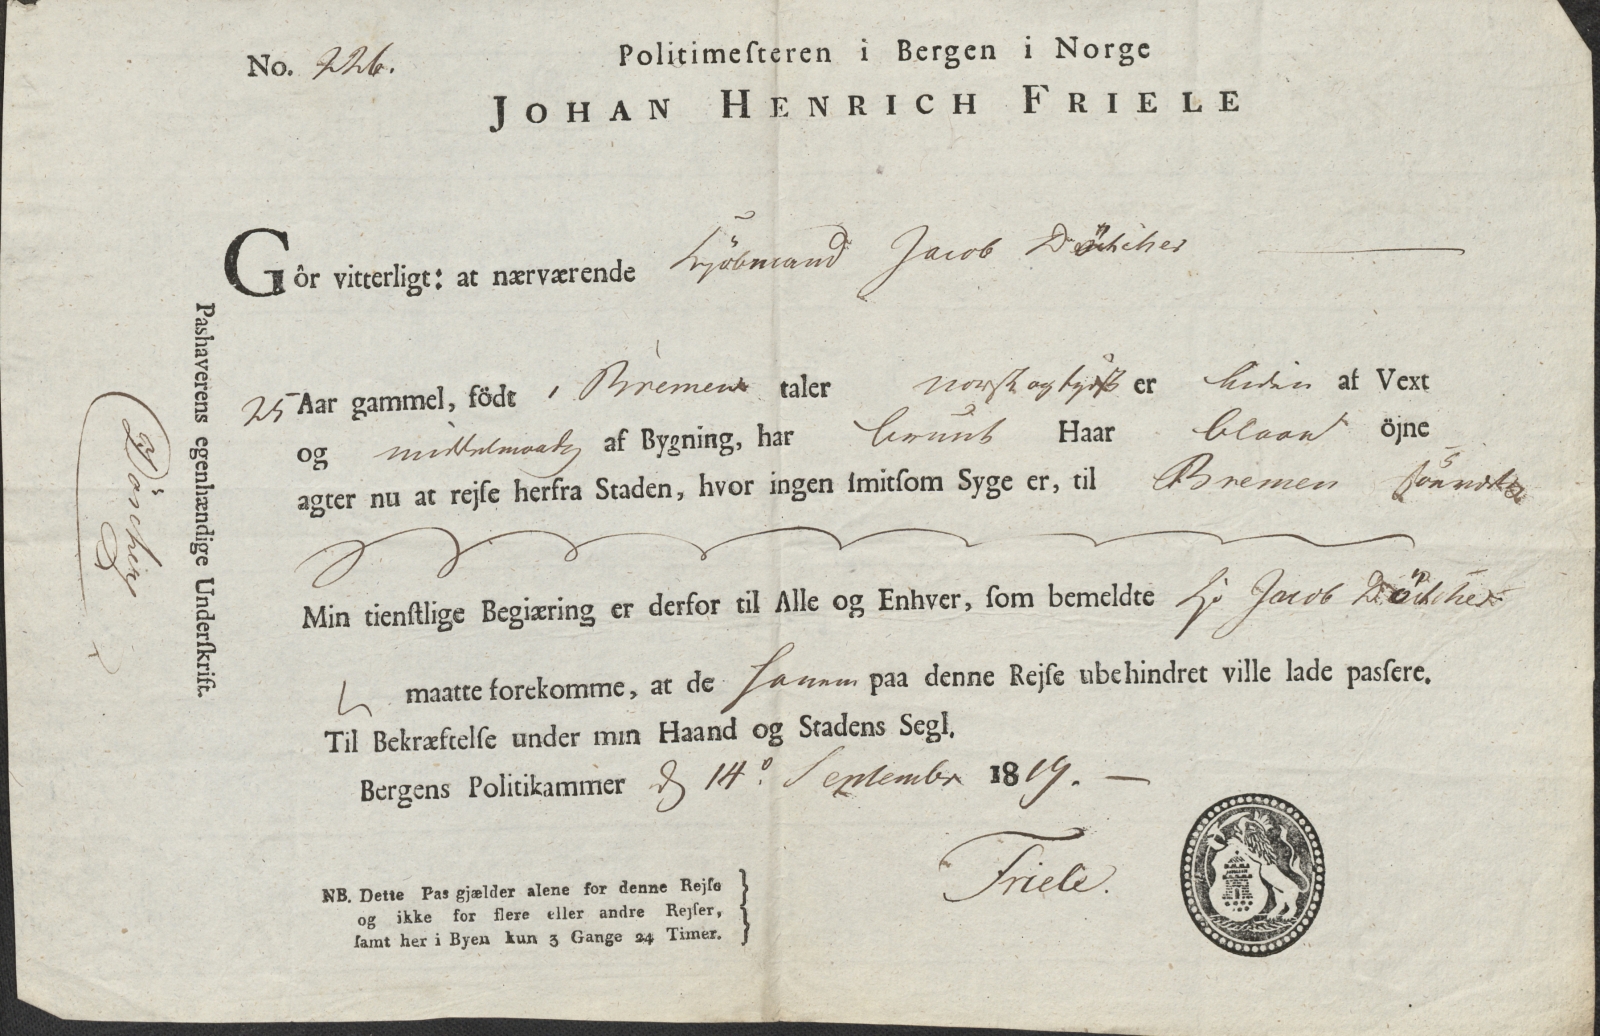 No. 226.
Politimeſteren i Bergen i Norge
JOHAN HENRICH FRIELE
Gôr vitterligt: at nærværende Kjöbmand Jacob
25 Aar gammel, födt i Bremen taler norsk og tydsk er liden af Vext
og middelmaadig af Bygning, har bruunt Haar blaae öjne
agter nu at rejſe herfra Staden, hvor ingen ſmitſom Syge er, til Bremen
Min tienſtlige Begiæring er derfor til Alle og Enhver, ſom bemeldte Kjö Jacob
maatte forekomme, at de ham paa denne Rejſe ubehindret ville lade paſſere.
Til Bekræftelſe under min Haand og Stadens Segl.
Bergens Politikammer d 14º. September 1819. —
Friele.
NB. Dette Pas gjælder alene for denne Rejſe
og ikke for flere eller andre Rejſer,
ſamt her i Byen kun 3 Gange 24 Timer.
Pashaverens egenhændige Underſkrift.